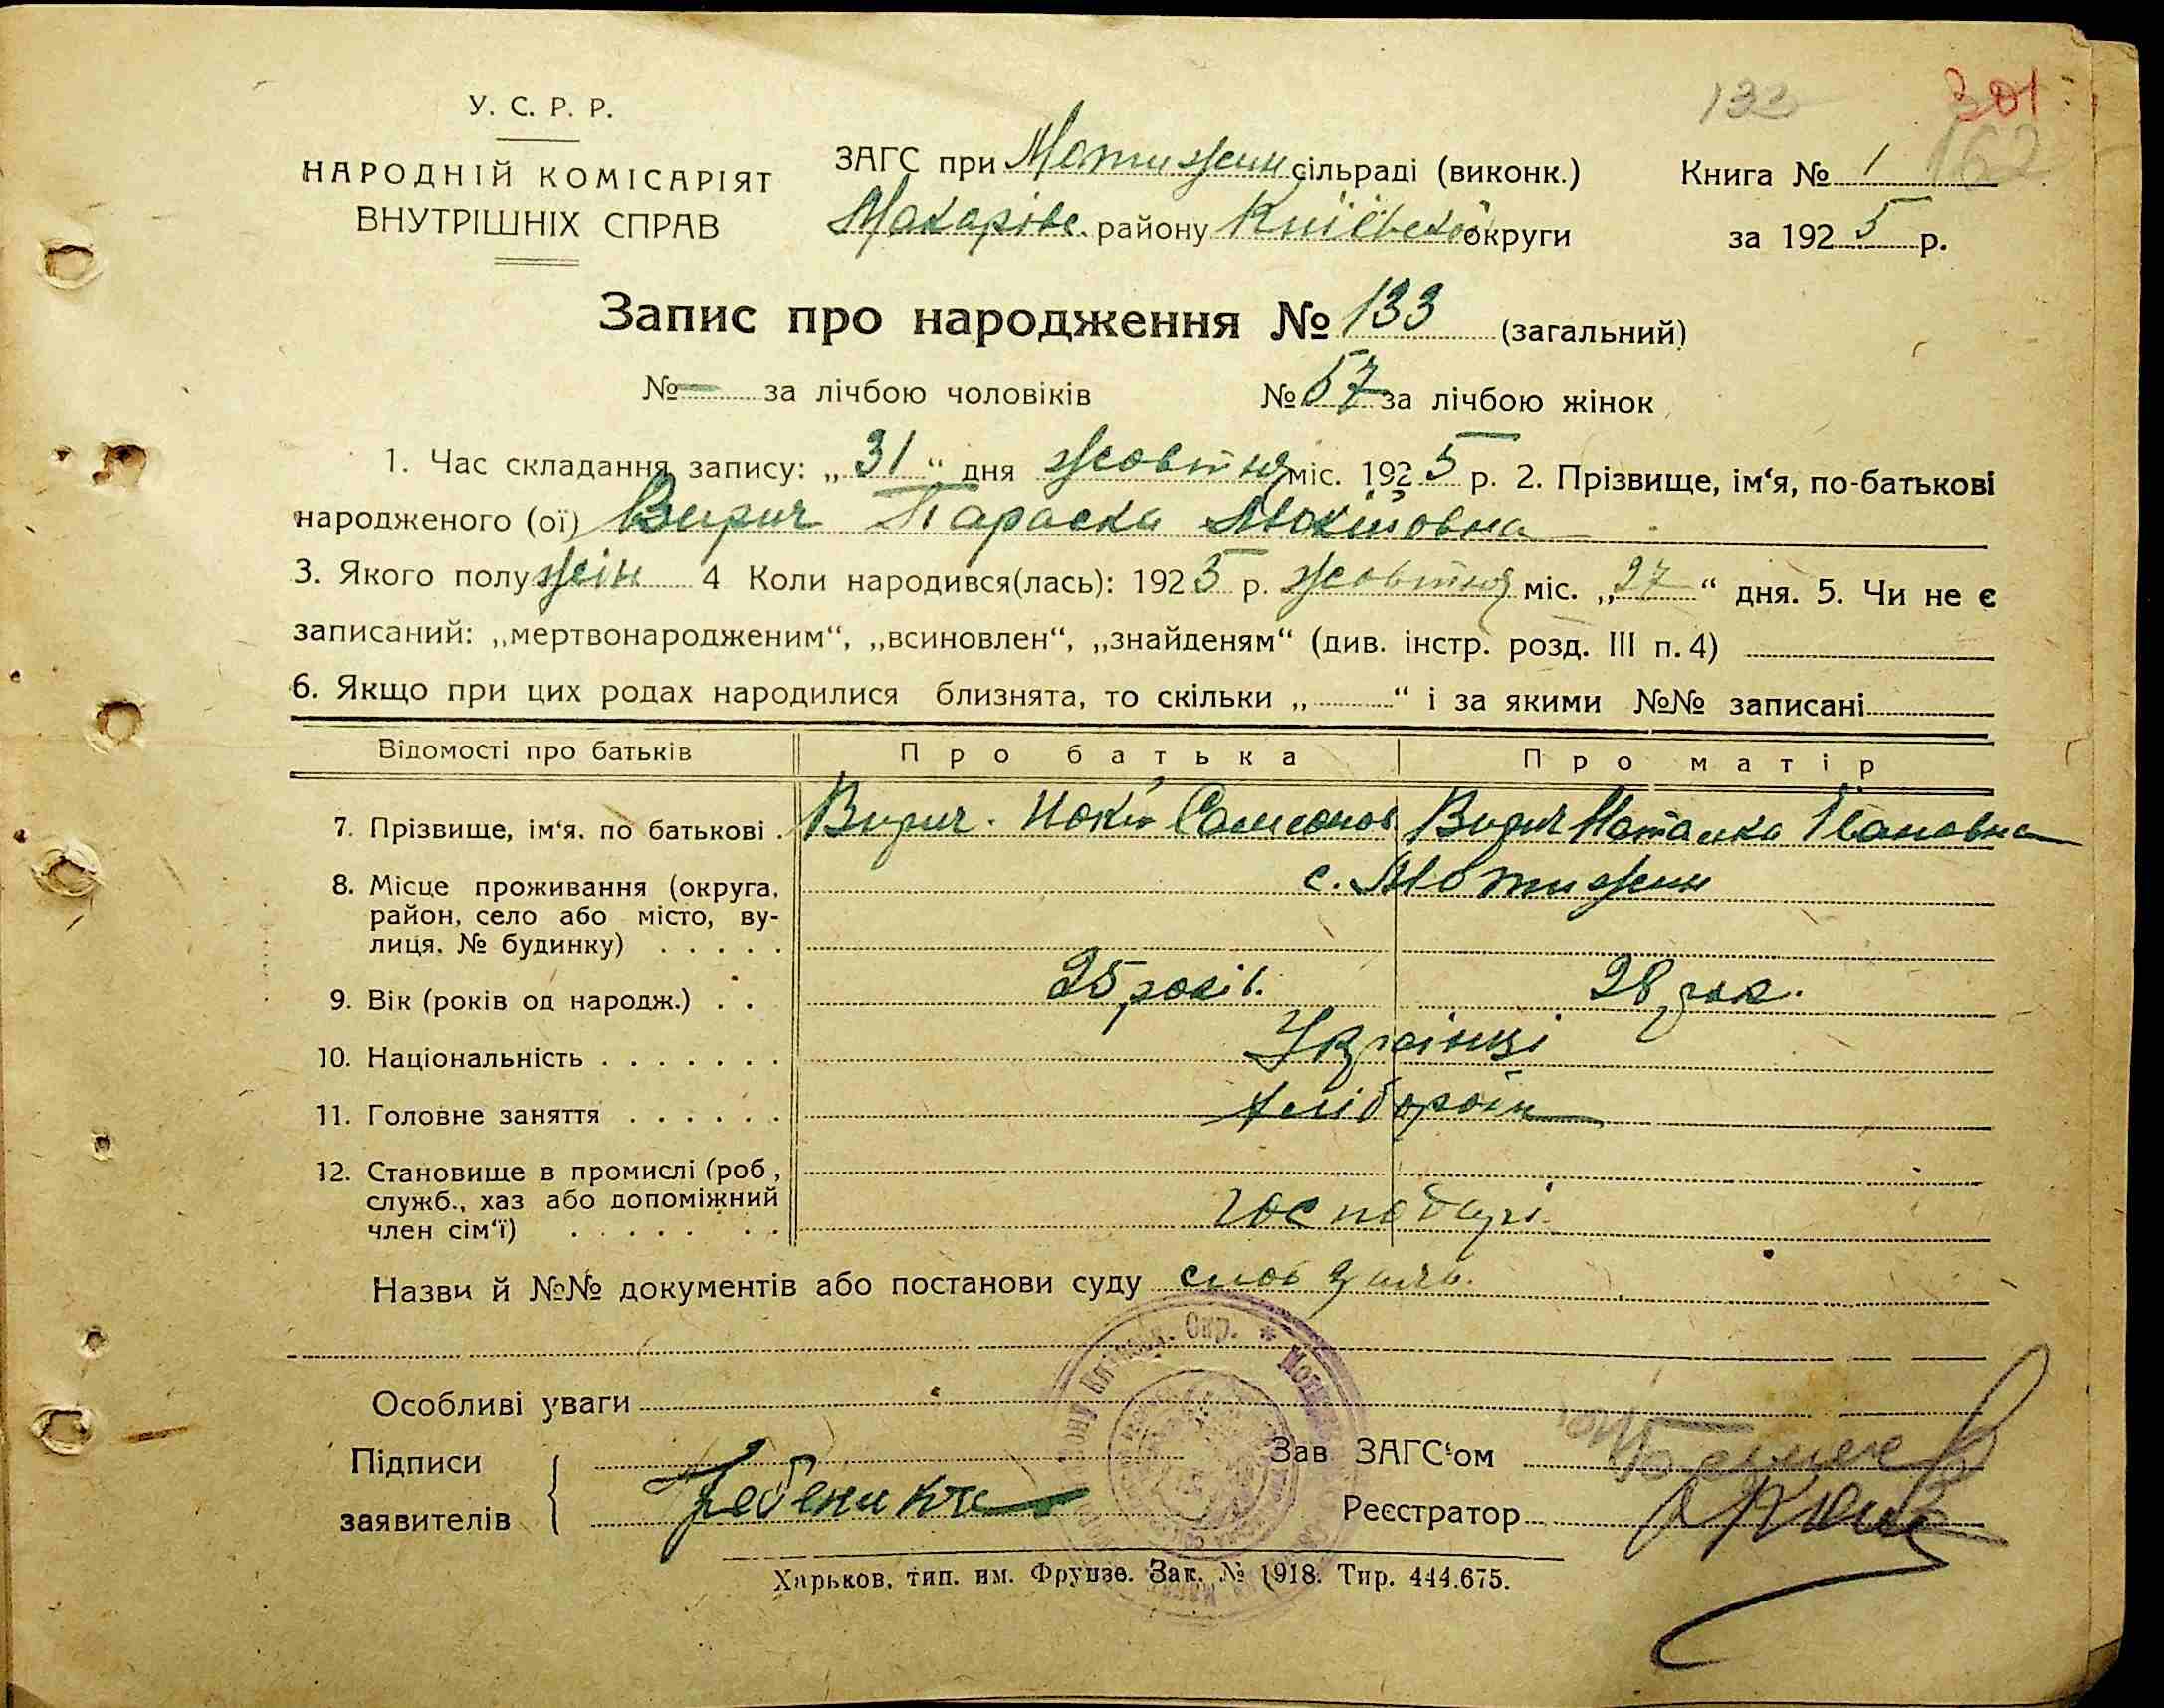 133 301
162
У. С. Р. Р.
НАРОДНІЙ КОМІСАРІЯТ
ВНУТРІШНІХ СПРАВ
ЗАГС при Мотижин сільраді (виконк.)
Макарівс. району Київської округи
Книга № 1
за 1925 р.
Запис про народження № 133 (загальний)
№ — за лічбою чоловіків № 57 за лічбою жінок
1. Час складання запису: „31“ дня жовтня міс. 1925 р. 2. Прізвище, ім‘я, по-батькові
народженого (ої) Вирич Параска Мокіювна
3. Якого полу жін 4 Коли народився(лась): 1925 р. жовтня міс. „27“ дня. 5. Чи не є
записаний: „мертвонародженим“, „всиновлен“, „знайденям“ (див. інстр. розд. III п. 4)
6. Якщо при цих родах народилися близнята, то скільки „ “ і за якими №№ записані
Відомості про батьків Про батька Про матір
7. Прізвище, ім‘я. по батькові . Вирич. Мокій Самсонов Вирич Наталка Івановна
8. Місце проживання (округа, с. Мотижин
район, село або місто, ву-
лиця. № будинку) . . . . .
9. Вік (років од народж.) . . 25 років. 28 рок.
10. Національність . . . . . . . Українці
11. Головне заняття . . . . . . хлібороби
12. Становище в промислі (роб,
служб., хаз або допоміжний господарі
член сім‘ї) . . . . . . .
Назви й №№ документів або постанови суду
Особливі уваги
Підписи Зав ЗАГС‘ом
заявителів Реєстратор
Харьков, тип. им. Фрунзе. Зак. № 1918. Тир. 444.675.